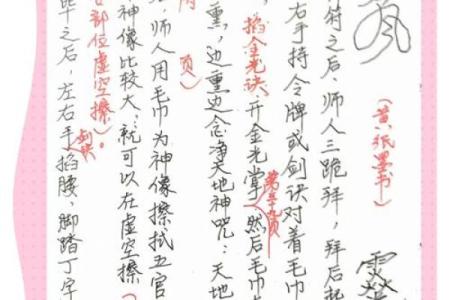 (黄纸墨书)
符之后,师人三跪拜,拜后起
右手持令牌或剑诀对着毛巾
掐金光诀,开金光掌,然后毛巾
熏,边熏边念净天地神咒:天地
页)
师人用毛巾为神像擦拭五官
神像比较大,就可以在虚空擦(
部位虚空擦)。
毕之后,左右手剑诀掐腰,脚踏丁字